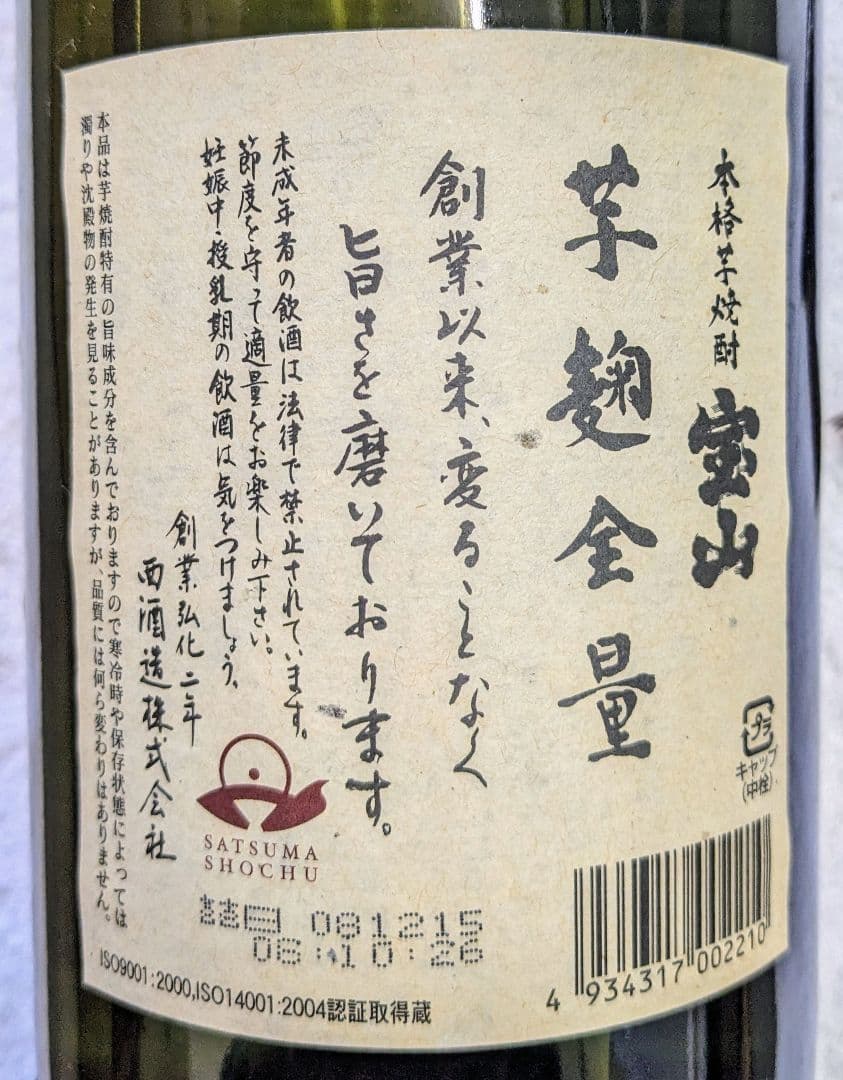 本格芋焼酎 宝山
芋麹全量
創業以来、変ることなく
旨さを磨いております。
未成年者の飲酒は法律で禁止されています。
節度を守って適量をお楽しみ下さい。
妊娠中・授乳期の飲酒は気をつけましょう。
創業弘化二年
西酒造株式会社
本品は芋焼酎特有の旨味成分を含んでおりますので寒冷時や保存状態によっては
濁りや沈殿物の発生を見ることがありますが、品質には何ら変わりはありません。
プラ
キャップ
(中栓)
SATSUMA
SHOCHU
詰日 081215
08:10:26
ISO9001:2000,ISO14001:2004認証取得蔵
4 934317 002210